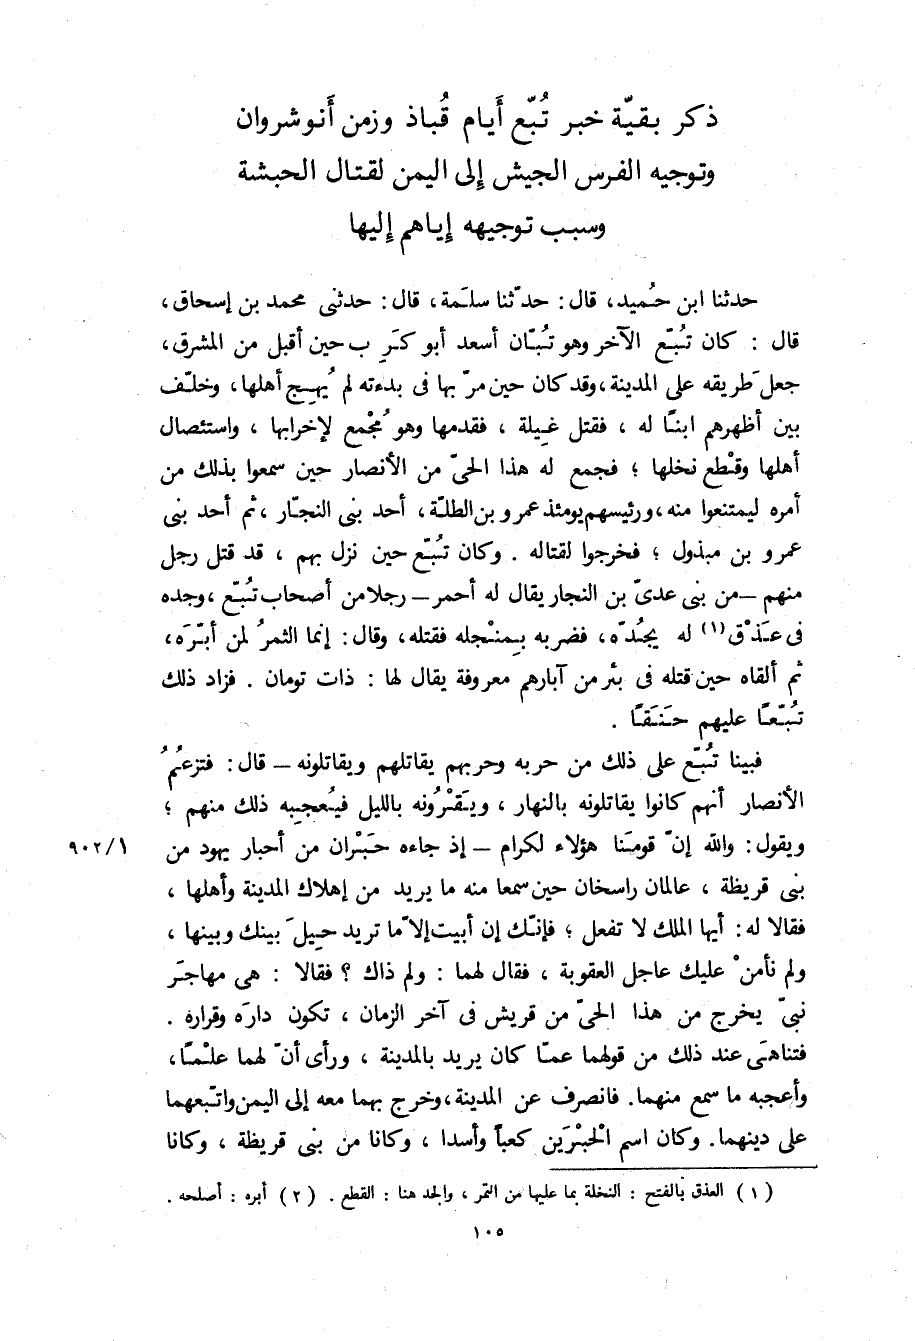 ذكر بقيّة خبر تُبّع أَيام قُباذ وزمن أَنوشروان
وتوجيه الفرس الجيش إِلى اليمن لقتال الحبشة
وسبب توجيهه إِياهم إِليها
حدثنا ابن حُميد، قال: حدّثنا سلَمة، قال: حدثنى محمد بن إسحاق،
قال : كان تُبّع الآخر وهو تُبّان أسعد أبو كَرِ ب حين أقبل من المشرق،
جعل طَريقه على المدينة، وقد كان حين مرّ بها فى بدءته لم يُهِج أهلها، وخلّف
بين أظهرهم ابنًا له ، فقتل غِيلة ، فقدمها وهو مُجْمع لإخرابها ، واستئصال
أهلها وقطْع نخلها ؛ فجمع له هذا الحىّ من الأنصار حين سمعوا بذلك من
أمره ليمتنعوا منه، ورئيسهم يومئذ عمرو بن الطلّة، أحد بنى النجّار ، ثم أحد بنى
عمرو بن مبذول ؛ فخرجوا لقتاله . وكان تُبّع حين نزل بهم ، قد قتل رجل
منهم – من بنى عدىّ بن النجار يقال له أحمر – رجلا من أصحاب تُبّع ، وجده
فى عَذْق(١) له يجُدّه، فضربه بِمنْجله فقتله، وقال: إنما الثمرُ لمن أبّرَه،
ثم ألقاه حين قتله فى بئر من آبارهم معروفة يقال لها : ذات تومان . فزاد ذلك
تُبّعًا عليهم حَنَقًا .
فبينا تُبّع على ذلك من حربه وحربهم يقاتلهم ويقاتلونه – قال: فتزعُمُ
الأنصار أنهم كانوا يقاتلونه بالنهار ، ويَقْرُونه بالليل فيُعجِبه ذلك منهم ؛
ويقول: والله إنّ قومنَا هؤلاء لكرام – إذ جاءه حَبْران من أحبار يهود من
٩٠٢/١
بنى قريظة ، عالمان راسخان حين سمعا منه ما يريد من إهلاك المدينة وأهلها ،
فقالا له: أيها الملك لا تفعل ؛ فإنّك إن أبيت إلاّ ما تريد حِيلَ بينك وبينها ،
ولم نأمنْ عليك عاجل العقوبة ، فقال لهما : ولم ذاك ؟ فقالا : هى مهاجَر
نبىّ يخرج من هذا الحىّ من قريش فى آخر الزمان ، تكون دارَه وقراره .
فتناهَى عند ذلك من قولهما عمّا كان يريد بالمدينة ، ورأى أنّ لهما علْمًا،
وأعجبه ما سمع منهما. فانصرف عن المدينة، وخرج بهما معه إلى اليمن واتّبعهما
على دينهما. وكان اسم الحَبْرَين كعباً وأسدا ، وكانا من بنى قريظة ، وكانا
( ١ ) العذق بالفتح : النخلة بما عليها من التمر ، والجد هنا : القطع . ( ٢ ) أبره : أصلحه .
١٠٥